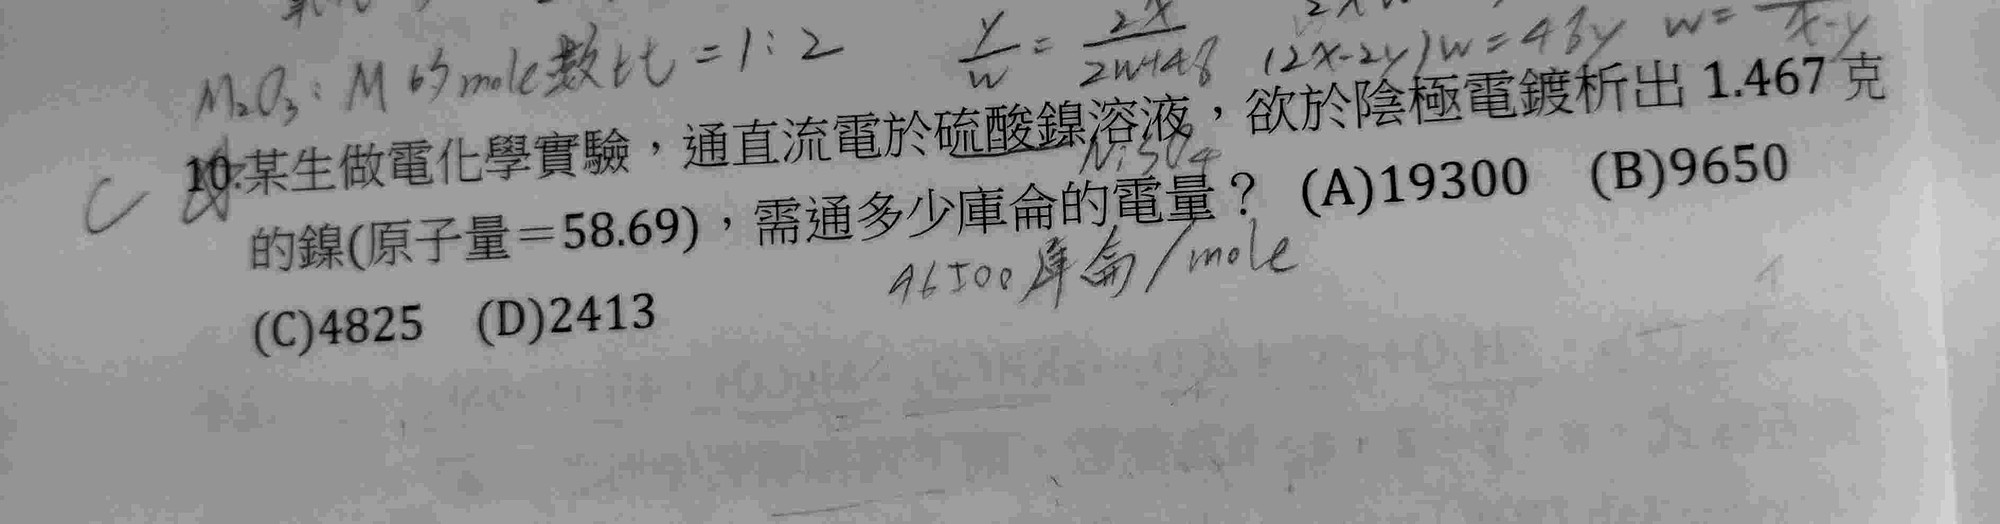 M₂O₃：M的mole數比＝1：2　y/w = 2x/2w+48　(2x-2y)w=48y　w=　x-y
C 10.某生做電化學實驗，通直流電於硫酸鎳溶液，欲於陰極電鍍析出 1.467 克
NiSO₄
的鎳(原子量＝58.69)，需通多少庫侖的電量？ (A)19300 (B)9650
96500庫侖/mole
(C)4825 (D)2413